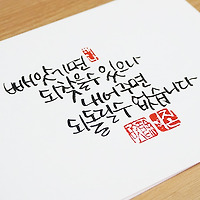 빼앗기면
되찾을수 있으나
내어주면
되돌릴수 없습니다